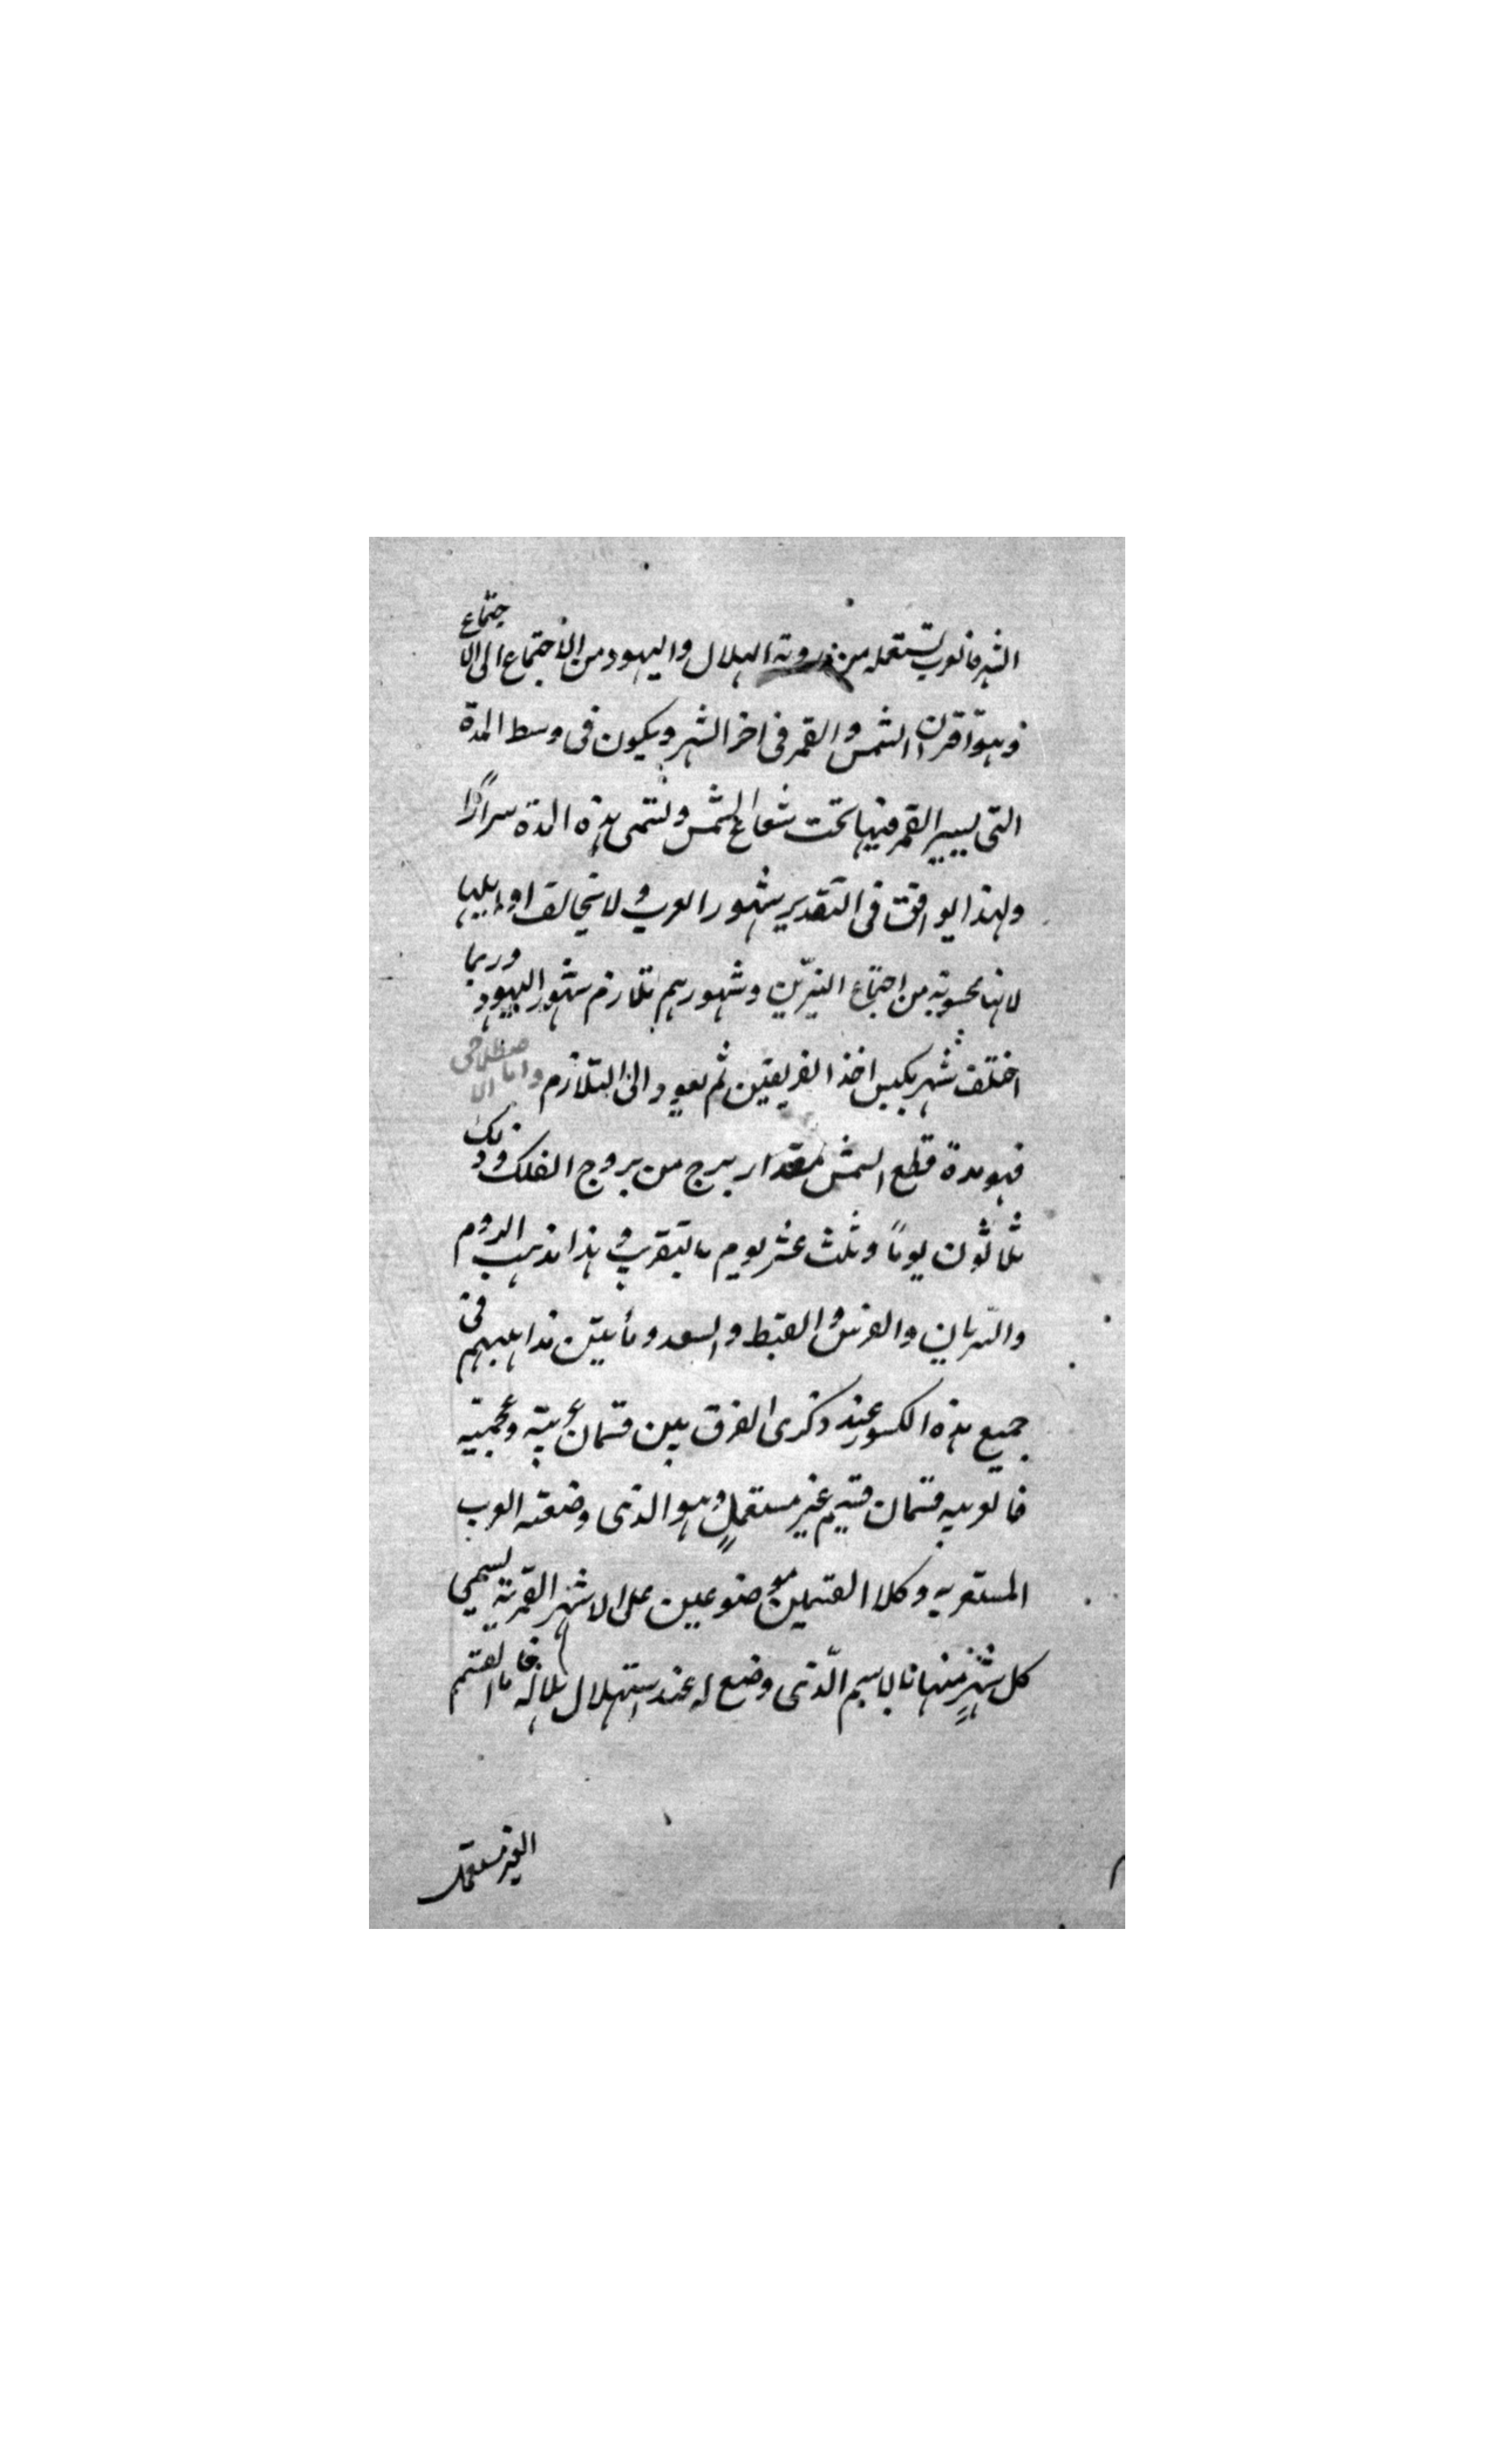 الشهر فالعرب تستعمله من رؤية الهلال واليهود من الاجتماع الى الاجتماع
وهو اقتران الشمس والقمر فى اخر الشهر ويكون فى وسط المدة
التى يسير القمر فيها تحت شعاع الشمس وتسمى هذه المدة سرارًا
ولهذا يوافق فى التقدير شهور العرب ولا يخالف اوايلها
لانها محسوبة من اجتماع النيّرين وشهورهم تلازم شهور اليهود وربما
اختلف شهر بكبس احد الفريقين ثم يعود الى التلازم واما الاصطلاحى
فهو مدة قطع الشمس مقدار برج من بروج الفلك وذلك
ثلاثون يومًا وثلث عشر يوم بالتقريب وهذا مذهب الروم
والسريان والفرس والقبط والسعد و مذاهبهم فى
جميع هذه الكسور عند ذكرى الفرق بين قسمان عربيّة وعجمية
فالعربيه قسمان قسم غير مستعملٍ وهو الذى وضعته العرب
المستعربه وكلا القسمين موضوعين على الاشهر القمرية يسمى
كل شهرٍ منها بالاسم الّذى وضع له عند استهلال هلاله فاما القسم
الغير مستعمل